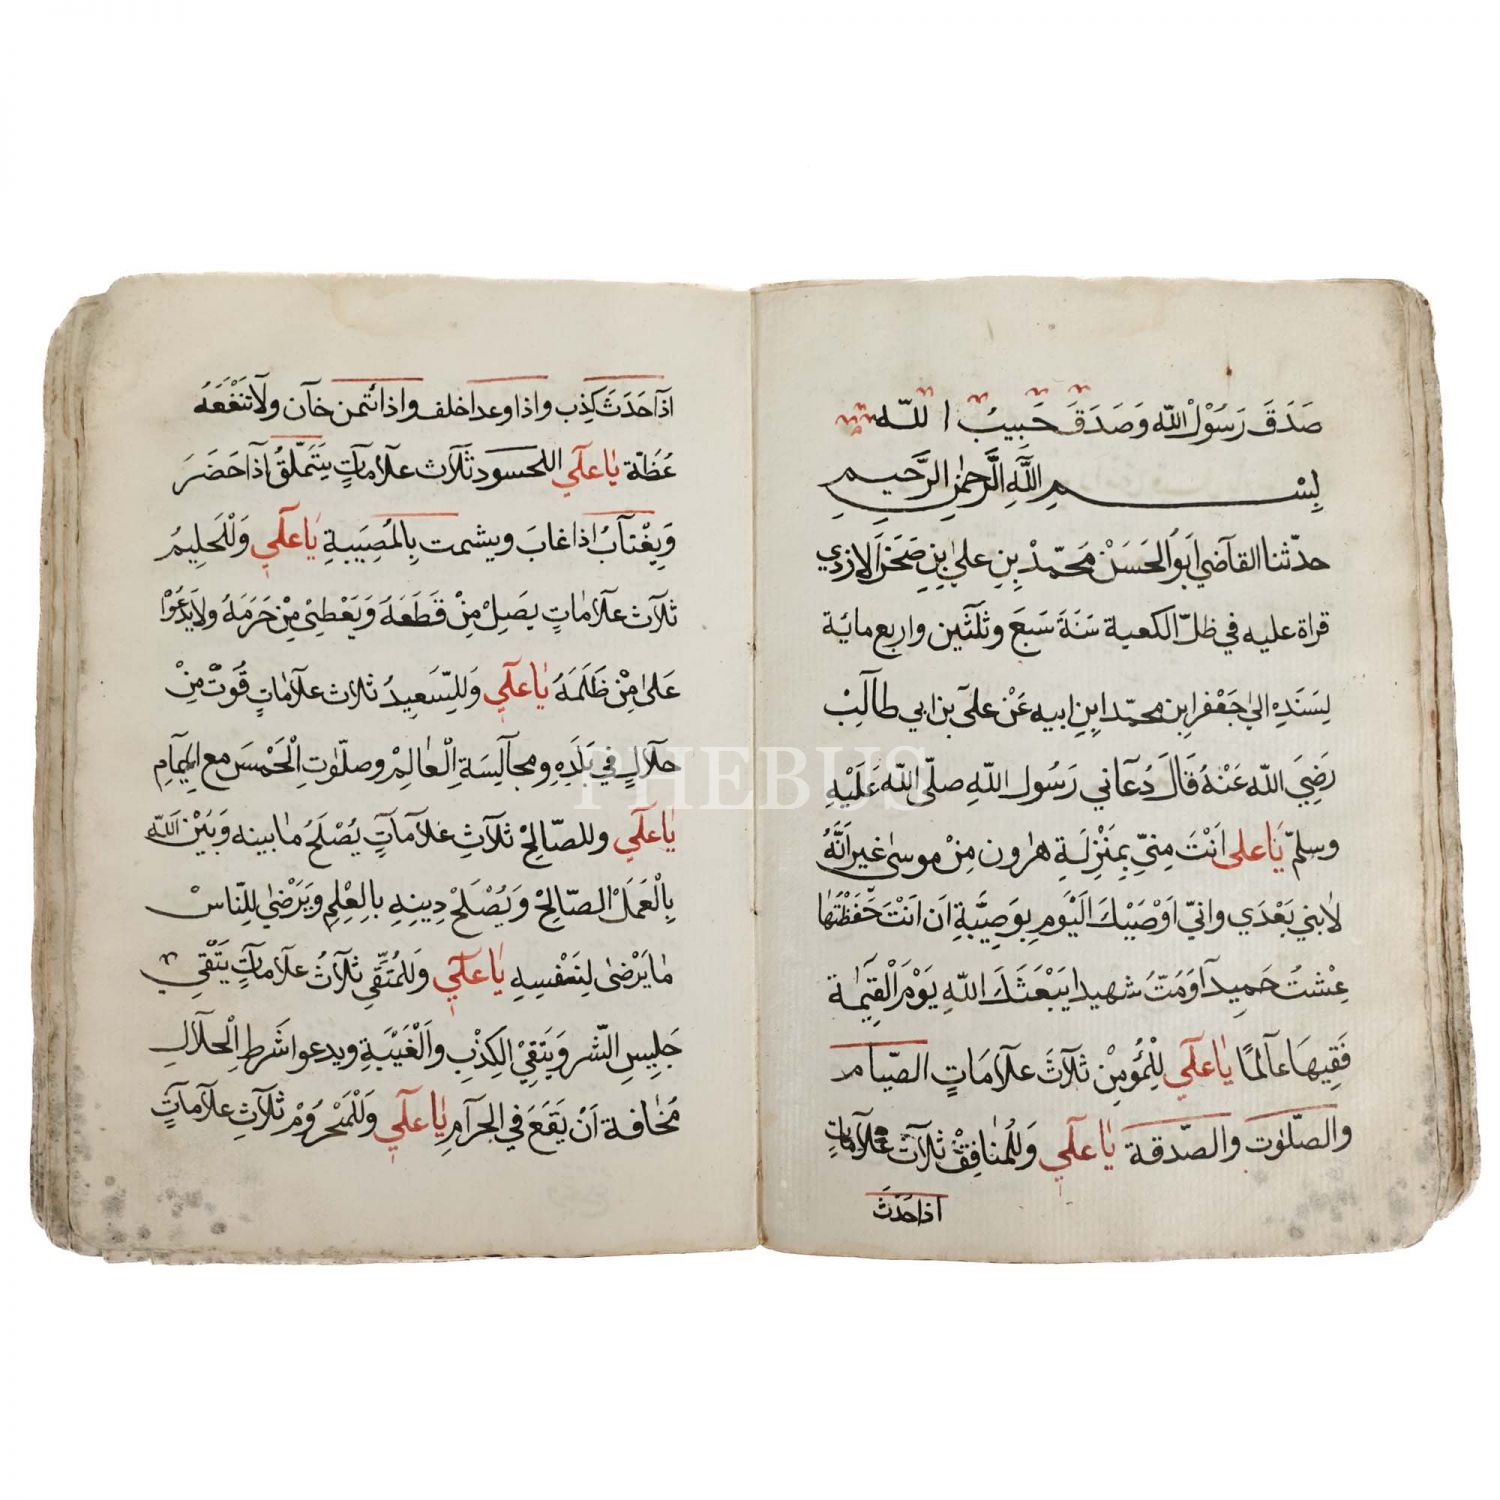 صَدَقَ رَسُوْلُ اللّه وَصَدَقَ حَبِيبُ اللّه
بِسْمِ اللَّهِ الرَّحْمٰنِ الرَّحِيمِ
حدّثنا القآضي ابوُ الحَسَنْ مَحَمّدْ بِنِ علي بِنِ صَخَرَ الازدي
قراة عليه في ظلّ الكعبة سَنَةَ سَبَعَ وثلَثَين واربع ماية
لِسَنَدِهِ الىٰ جَعْفَر ابن محمّد ابنِ ابيه عَنْ علي بن ابي طآلِبْ
رَضِيَ اللّه عَنْهُ قَالَ دُعآني رَسُول اللّهِ صلّى اللّه عَلَيْهِ
وسلمّ يَا على انْتَ مِنيّ بِمَنْزِلَةِ هٰرون مِنْ موسىٰ غير انَّهُ
لانبي بَعْدَي وانيّ اوْصَيْكَ اليَومِ بِوَصِيَّةِ ان انْتَ حَفَظْتَهٰا
عِشتُ حَمِيداً وَمُتّ شهيدا يَبْعَثَكَ اللّهِ يَوْمَ الْقِيَمٰة
فَقِيهَا عآلمًا يٰا عَلَي لِلْمُؤمِنْ ثلآثَ علآمَاتٍ الصّيٰام
والصّلٰوت والصّدقة يٰا عَلَي وَلْلمُنافِقْ ثلآث علآمٰاتٍ
اذا حَدَثَ
اذا حَدَثَ كَذِب واذا وعد اخلف واذا ائتمن خآن ولآ تنْفَعَهُ
عُظّة يٰا عَلَي اللحسود ثلآث علآماتٍ يَتَملّقُ اذا حَضَرَ
وَيِغْتآبُ اذا غابَ ويشمت بِالمُصِيَبةِ يٰا عَلَي وَلْلحَلِيمُ
ثلآث علآمٰاتٍ يصَلِ مِنْ قَطَعَهُ وَيَعْطِىْ مِنْ حَرَمَهُ ولا يَدعُوْا
عَلىٰ مِنْ ظَلَمَهُ يٰا عَلَي وَللِسّعِيدُ ثلاث علآمٰاتٍ قُوتْ مِنْ
حلآلٍ في بَلَدِهِ ومجآلِسَةِ الْعٰالِمْ وصلّوٰتِ الْخَمْسَ مع الإمٰام
يٰا عَلَي وللصّالحْ ثلآثِ علآمآتٍ يُصْلَحُ مٰا بينه وَبَيْنَ اللّه
بِالْعَمَلْ الصّالحْ وَيُصْلَحْ دِينِهِ بالعِلِمِ وَيَرْضٰى للِنّاسْ
مٰا يَرْضٰى لنَفْسِهِ يٰا عَلَي وَللمُتَقّي ثلآثُ علآماتٍ يَتّقي
جَلِيسِ الشّر وَيَتقِيْ الكِذْبِ والْغَيْبَةِ ويدعوا شَرطِ الْحلآل
مُخٰافة انْ يَقَعَ في الحرآمِ يٰا عَلَي وَلْلمَحْرُومْ ثلآثِ علآماتٍ
PHEBUS